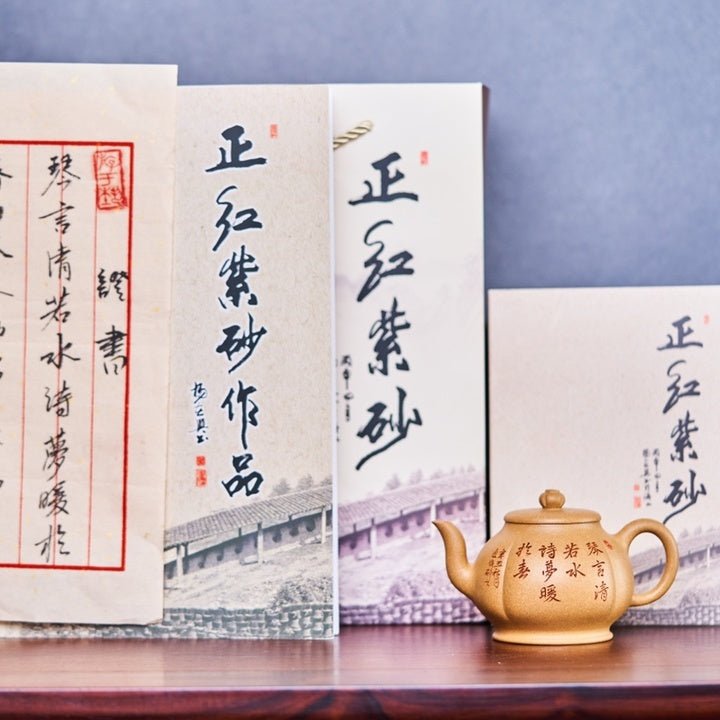 證書
琴言清若水詩夢暖於
正红紫砂作品
正红紫砂
正红紫砂
琴言清
若水
詩夢暖
於春